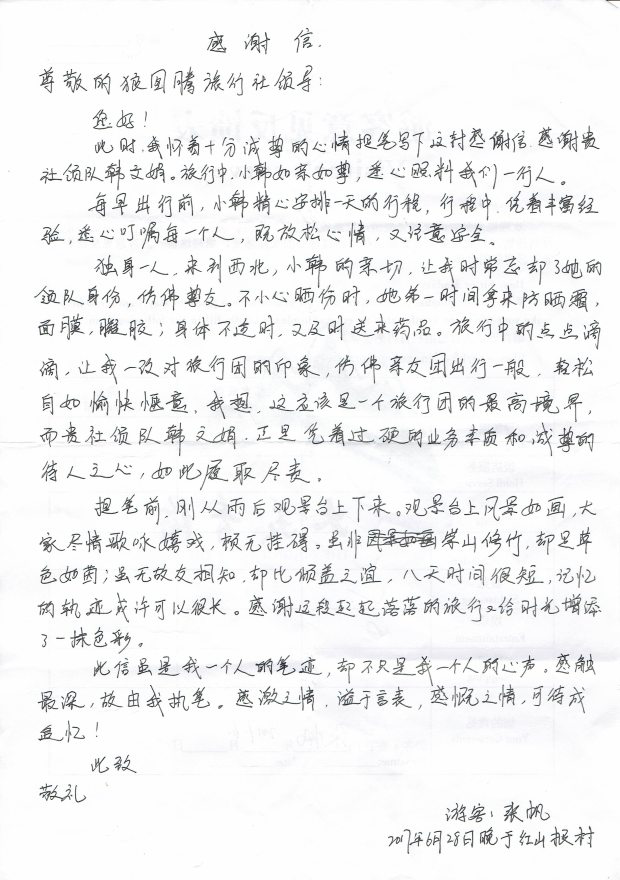 感谢信.
尊敬的狼图腾旅行社领导：
您好！
此时，我怀着十分诚尊的心情提笔写下这封感谢信，感谢贵
社领队韩文娟。旅行中，小韩如亲如尊，悉心照料我们一行人。
每早出行前，小韩精心安排一天的行程，行程中，凭着丰富经
验，悉心叮嘱每一个人，既放松心情，又注意安全。
独身一人，来到西北，小韩的亲切，让我时常忘却了她的
领队身份，仿佛尊友。不小心晒伤时，她第一时间拿来防晒霜，
面膜，胶；身体不适时，又及时送来药品。旅行中的点点滴
滴，让我一改对旅行团的印象，仿佛亲友团出行一般，轻松
自如，愉快惬意，我想，这应该是一个旅行团的最高境界，
而贵社领队韩文娟，正是凭着过硬的业务素质和诚尊的
待人之心，如此履取尽责。
提笔前，刚从雨后观景台上下来。观景台上风景如画，大
家尽情歌咏嬉戏，颇无挂碍。虽非崇山修竹，却是草
色如茵；虽无故友相知，却比倾盖之谊，八天时间很短，记忆
的轨迹或许可以很长。感谢这段起起落落的旅行又给时光增添
了一抹色彩。
此信虽是我一个人的笔迹，却不只是我一个人的心声。感触
最深，故由我执笔。感激之情，溢于言表，感慨之情，可待成
追忆！
此致
敬礼
游客：张帆
2017年6月28日晚于红山根村